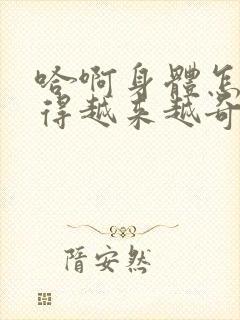 哈啊身體怎
得越来越奇
隋安然